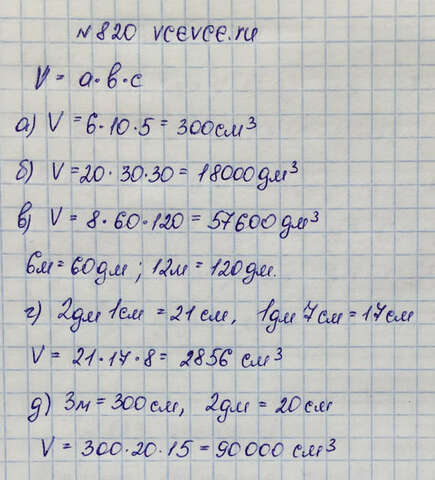 № 820 vcevce.ru
V = a·b·c
а) V = 6·10·5 = 300 см³
б) V = 20·30·30 = 18000 дм³
в) V = 8·60·120 = 57600 дм³
6м = 60 дм; 12м = 120 дм.
г) 2дм 1см = 21 см, 1дм 7см = 17 см
V = 21·17·8 = 2856 см³
д) 3м = 300 см, 2дм = 20 см
V = 300·20·15 = 90000 см³